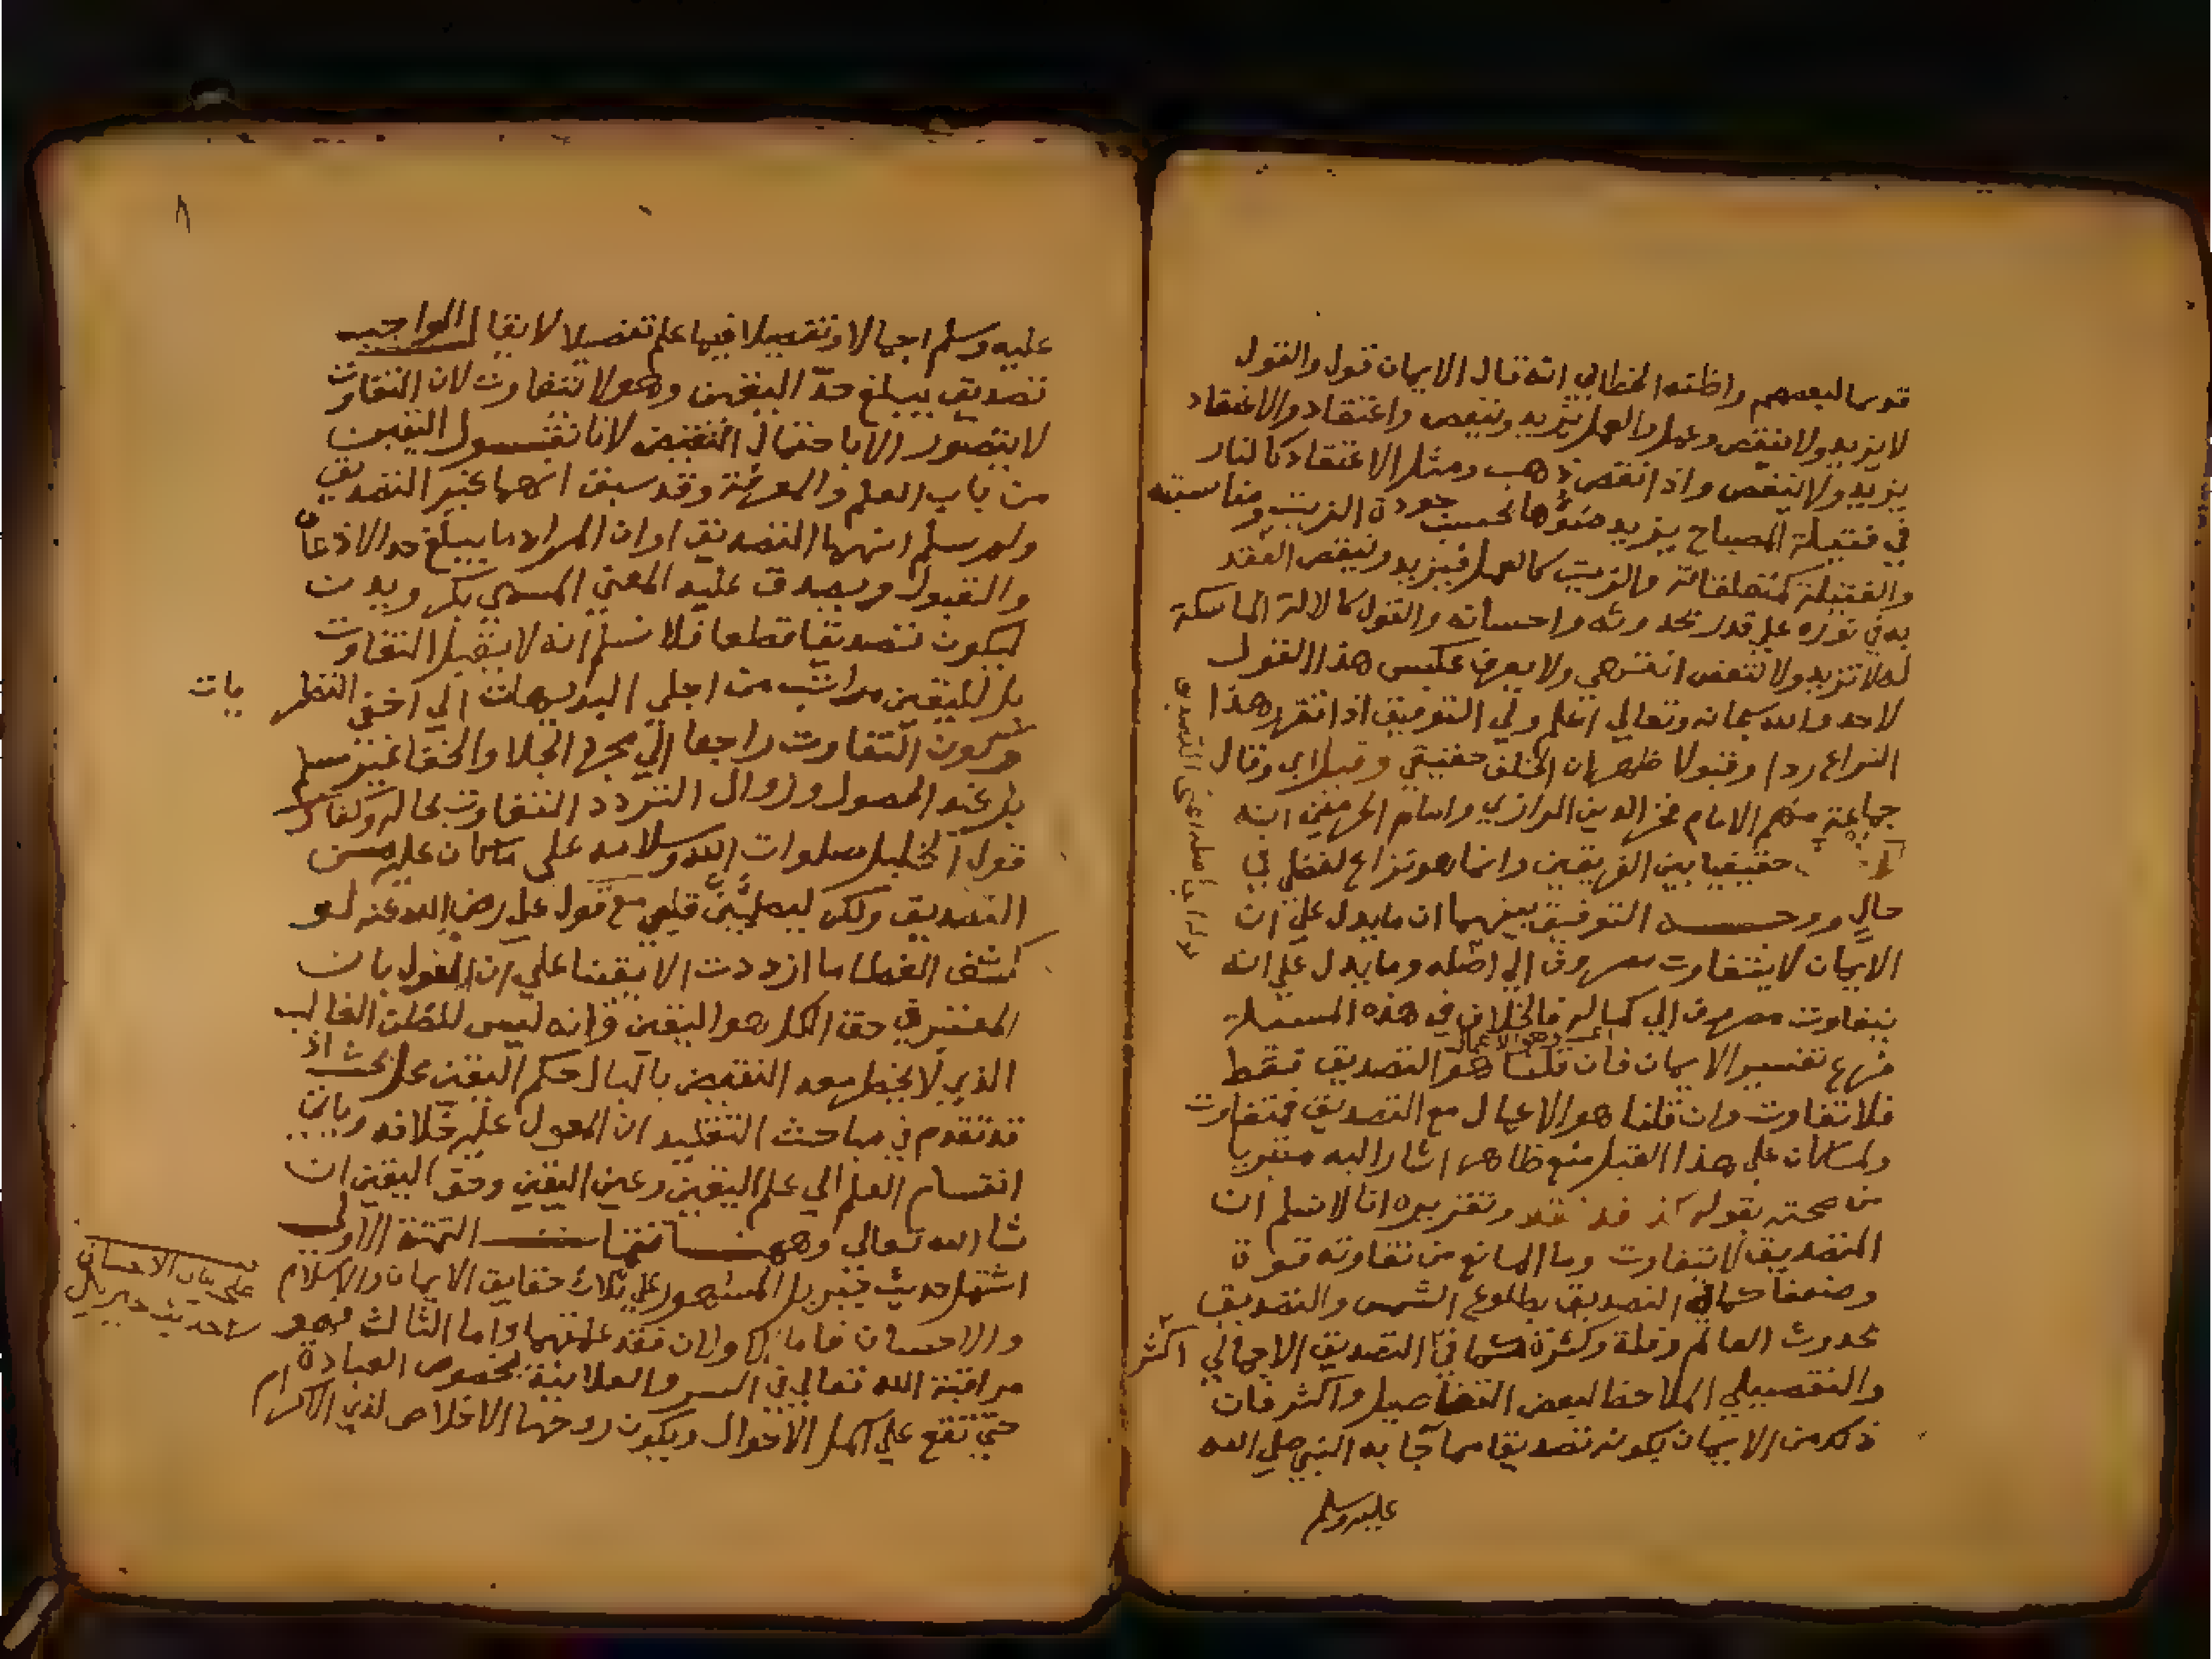 قوما لبعضهم واظنه الخطابي انه قال الايمان قول والقول
لا يزيد ولا ينقص وعمل والعمل يزيد وينقص واعتقاد والاعتقاد
يزيد ولا ينقص واذا نقص ذهب ومثل الاعتقاد كالنار
في فتيلة المصباح يزيد ضوؤها بحسب جودة الزيت ومناسبته
والفتيلة كمتعلقاته والزيت كالعمل فيزيد وينقص العقد
به في نوره على قدر حدوثه واحسانه والقول كالالة الماسكة
له لا تزيد ولا تنقص انتهى ولا يعرف عكس هذا القول
لاحد والله سبحانه وتعالى اعلم ولي التوفيق اذا تقرر هذا
النزاع ردا وقبولا ظهر ان الخلف حقيقي وقيل اي وقال
جماعة منهم الامام فخر الدين الرازي وامام الحرمين انه
حقيقيا بين الفريقين وانما هو نزاع لفظي في
حال ووجه التوفيق بينهما ان ما يدل على ان
الايمان لا يتفاوت مصروف الى اصله وما يدل على انه
يتفاوت مصروف الى كماله فالخلاف في هذه المسئلة
فرع تفسير الايمان فان قلنا هو التصديق فقط
فلا تفاوت وان قلنا هو الاعمال مع التصديق فمتفاوت
ولما كان على هذا القيل منع ظاهر اشار اليه متبريا
من صحته بقوله كذا قد نقلا وتقريره انا لا نسلم ان
التصديق لا يتفاوت وما المانع من تفاوته قوة
وضعفا كما في التصديق بطلوع الشمس والتصديق
بحدوث العالم وقلة وكثرة كما في التصديق الاجمالي
والتفصيلي الملاحظ لبعض التفاصيل واكثر فان
ذلك من الايمان لكونه تصديقا بما جا به النبي صلى الله
عليه وسلم
٨
عليه وسلم اجمالا وتفصيلا فيما علم تفصيلا لا يقال الواجب
تصديق يبلغ حد اليقين وهو لا يتفاوت لان التفاوت
لا يتصور الا باحتمال النقيض لانا نقول اليقين
من باب العلم والمعرفة وقد سبق انهما غير التصديق
ولو سلم انهما التصديق او ان المراد ما يبلغ حد الاذعان
والقبول ويصدق عليه المعنى المسمى بكرويدن
ليكون تصديقا قطعا فلا نسلم انه لا يقبل التفاوت
بل لليقين مراتب من اجلى البديهات الى اخفى النظريات
وكون التفاوت راجعا الى مجرد الجلا والخفا غير مسلم
بل عند الحصول وزوال التردد التفاوت بحاله وكفاك
قول الخليل صلوات الله وسلامه على ما كان عليه من
التصديق ولكن ليطمئن قلبي مع قول علي رضي الله عنه لو
كشف الغطا ما ازددت الا يقينا على ان القول بان
المعتبر في حق الكل هو اليقين وانه ليس للظن الغالب
الذي لا يخطر معه النقيض بالبال حكم اليقين محل بحث اذ
قد تقدم في مباحث التقليد ان المعول عليه خلافه وياتي
انقسام العلم الى علم اليقين وعين اليقين وحق اليقين ان
شا الله تعالى وههنا تتمات التتمة الاولى
اشتمل حديث جبريل المشهور على ثلاث حقايق الايمان والاسلام
والاحسان فاما الاولان فقد علمتهما واما الثالث فهو
مراقبة الله تعالى في السر والعلانية بخصوص العبادة
حتى تقع على اكمل الاحوال ويكون روحها الاخلاص لذي الاكرام
على بيان الاحسان
حديث جبريل